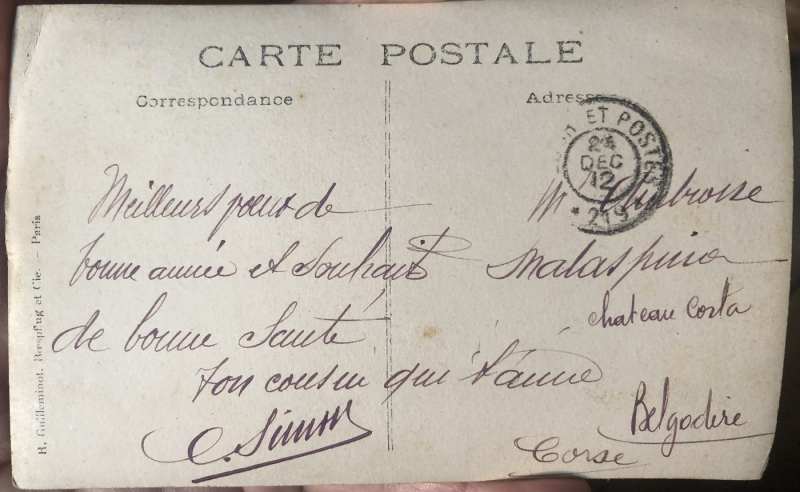 CARTE POSTALE
Correspondance
Adresse
ET POSTES
24
DEC
12
* 219
Meilleurs voeux de
bonne année et Souhait
de bonne Santé
ton cousin qui t'aime
C. Simon
M Ambroise
Malaspina
chateau Costa
Belgodère
Corse
R. Guilleminot, Bœspflug et Cie. – Paris